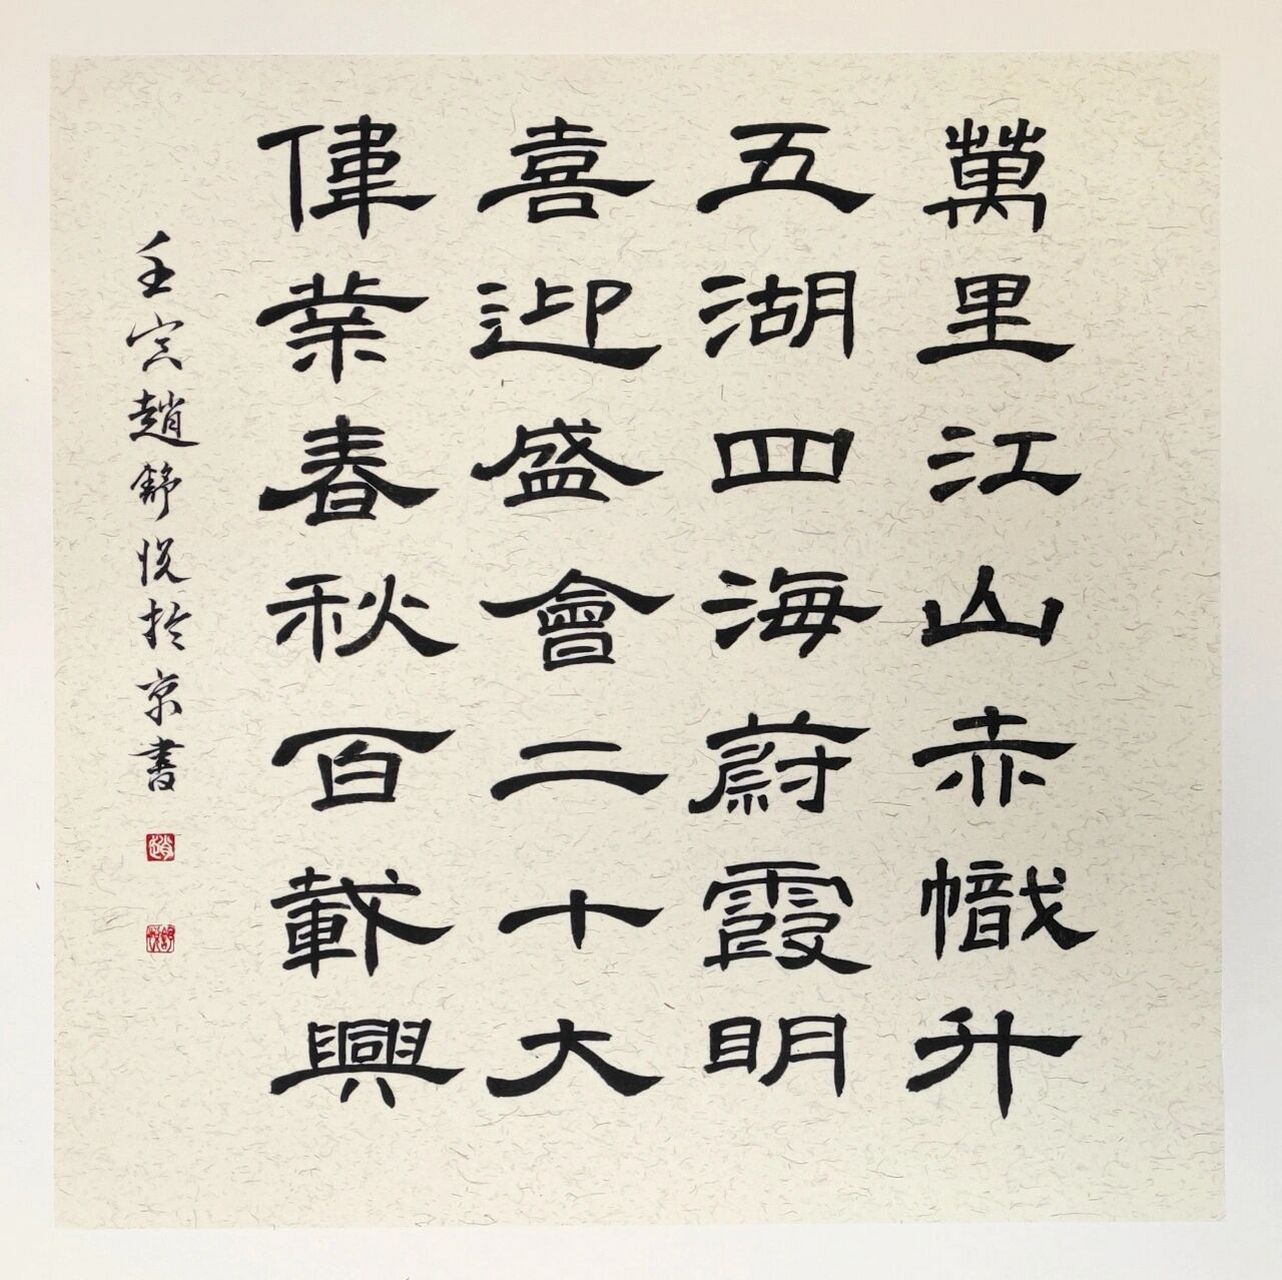 萬里江山赤幟升
五湖四海蔚霞明
喜迎盛會二十大
偉業春秋百載興
壬寅趙舒悅於京書
趙
舒悅